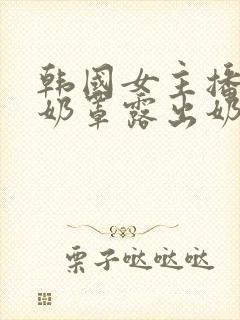 韩国女主播
奶罩露出奶
栗子哒哒哒